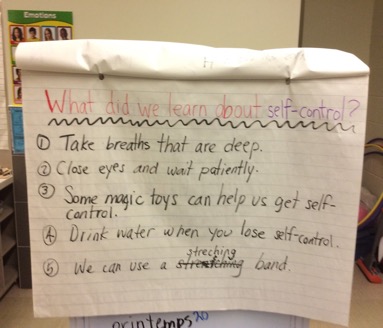 Emotions
What did we learn about self-control?
① Take breaths that are deep.
② Close eyes and wait patiently.
③ Some magic toys can help us get self-
control.
④ Drink water when you lose self-control.
streching
⑤ We can use a band.
printemps 20